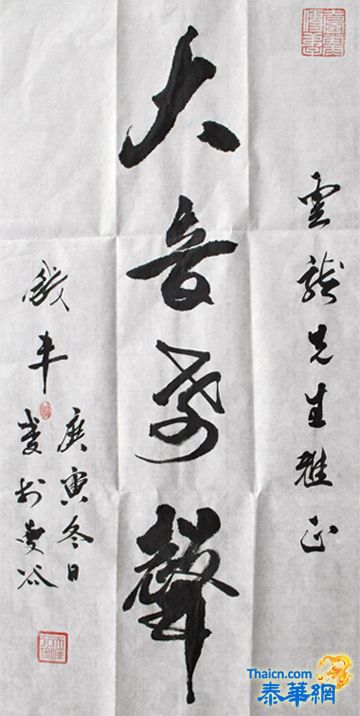 雲龍先生雅正
大音希聲
庚寅冬日
書於曼谷
Thaicn.com
泰華網